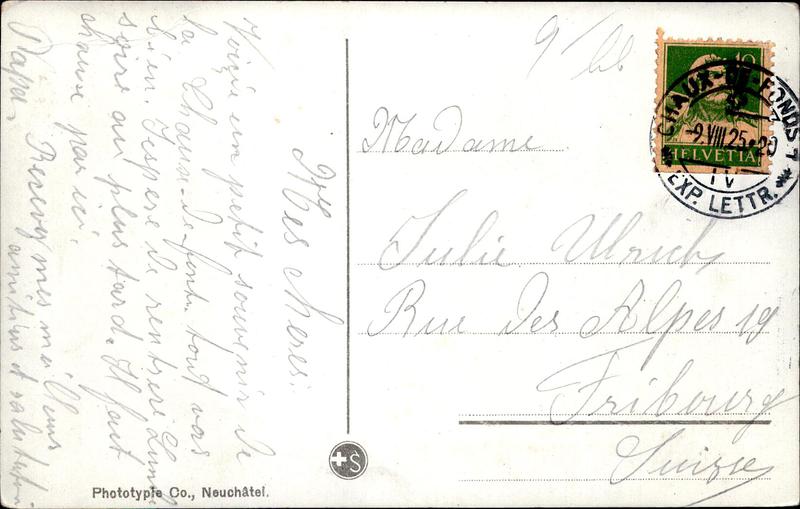 Mes cheres.
Voici un petit souvenir de
la Chaux-de-fonds tout vas
bien. J'espere de rentrere Lundi
soire au plus tard. Il faut
chaux par ici.
Recevez mes meilleurs
amitius et salutation
Papa,
9/
Madame
Julie Ulrich,
Rue des Alpes 19
Fribourg
Suisse
10
HELVETIA
CHAUX-DE-FONDS 1
-9.VIII.25.-20
IV
EXP. LETTR.
+S
Phototypie Co., Neuchâtel.